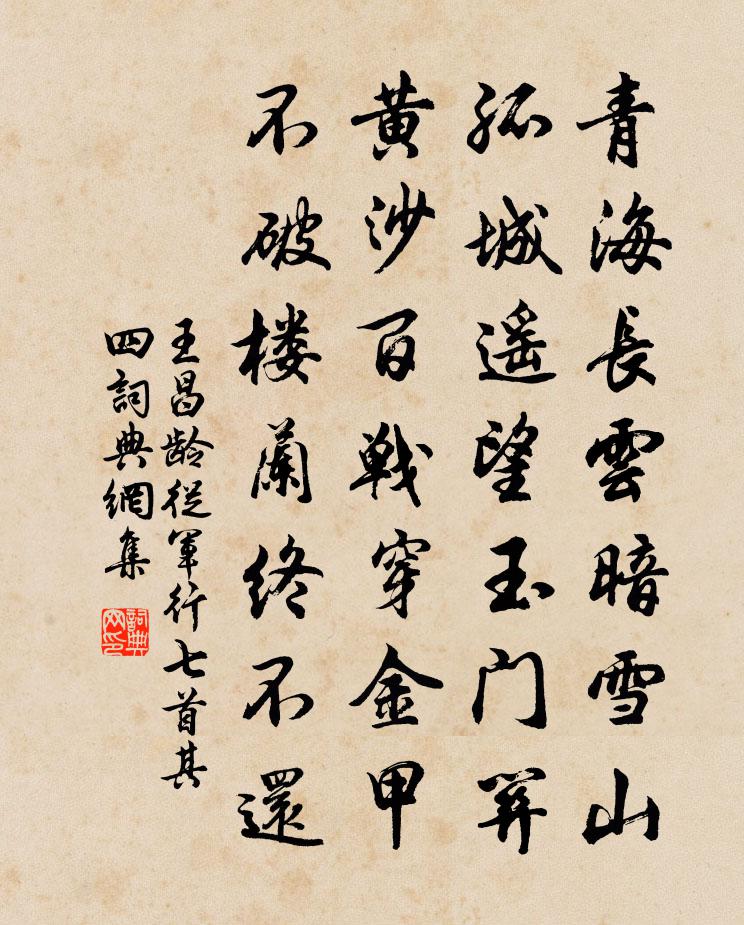 青海長雲暗雪山
孤城遥望玉門關
黄沙百戰穿金甲
不破楼蘭終不還
王昌龄從軍行七首其
四詞典網集
詞典
网印